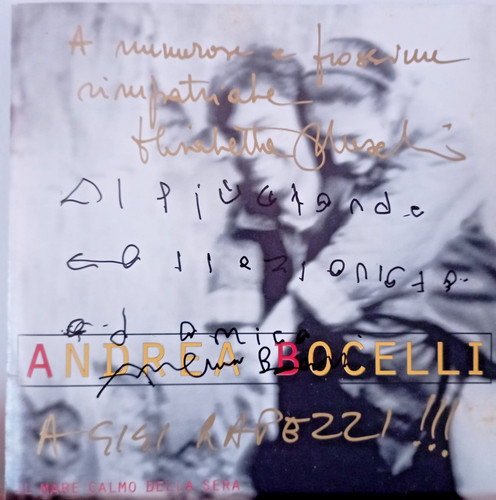 A numerose e prossime
rimpatriate
Elisabetta
Al più grande
collezionista
ed amico
ANDREA BOCELLI
Andrea Bocelli
A GIGI RAPEZZI!!!
IL MARE CALMO DELLA SERA